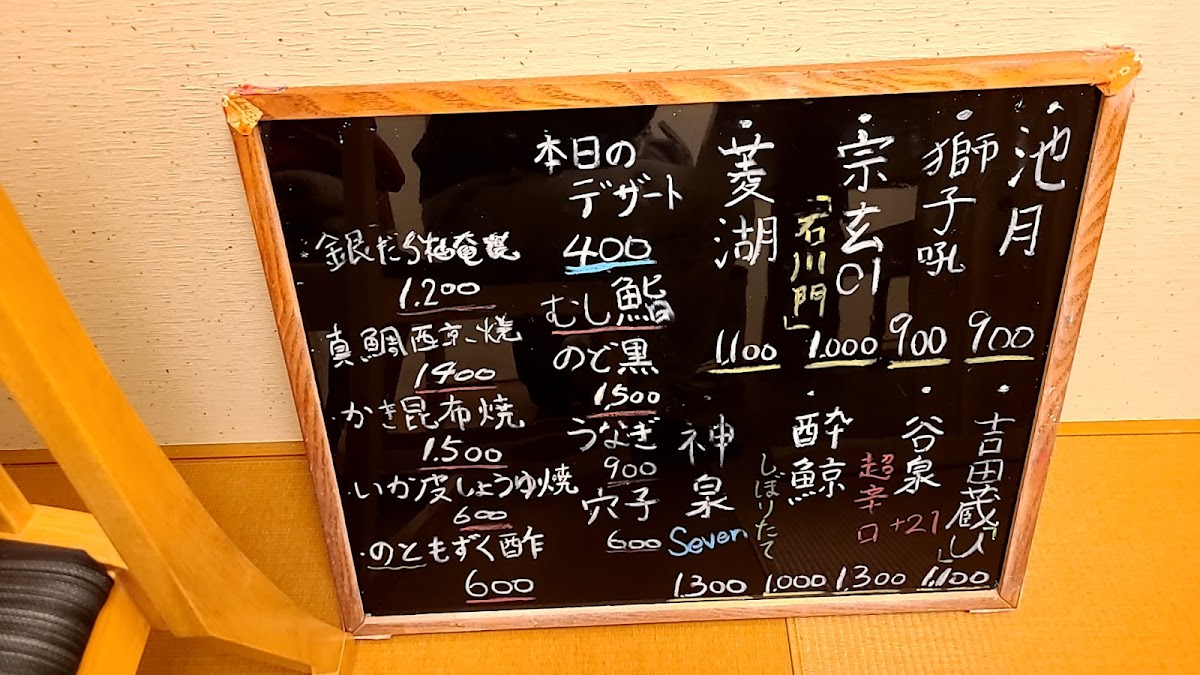 ・池月
900
・獅子吼
900
・宗玄01
「石川門」
1.000
・菱湖
1.100
・吉田蔵「U」
1.100
・谷泉
超辛口+21
1.300
・酔鯨
しぼりたて
1.000
・神泉
Seven
1.300
本日の
デザート
400
むし鮨
のど黒
1.500
うなぎ
900
穴子
600
・銀だら幽庵焼
1.200
・真鯛西京焼
1400
・かき昆布焼
1.500
・いか皮しょうゆ焼
600
・のともずく酢
600